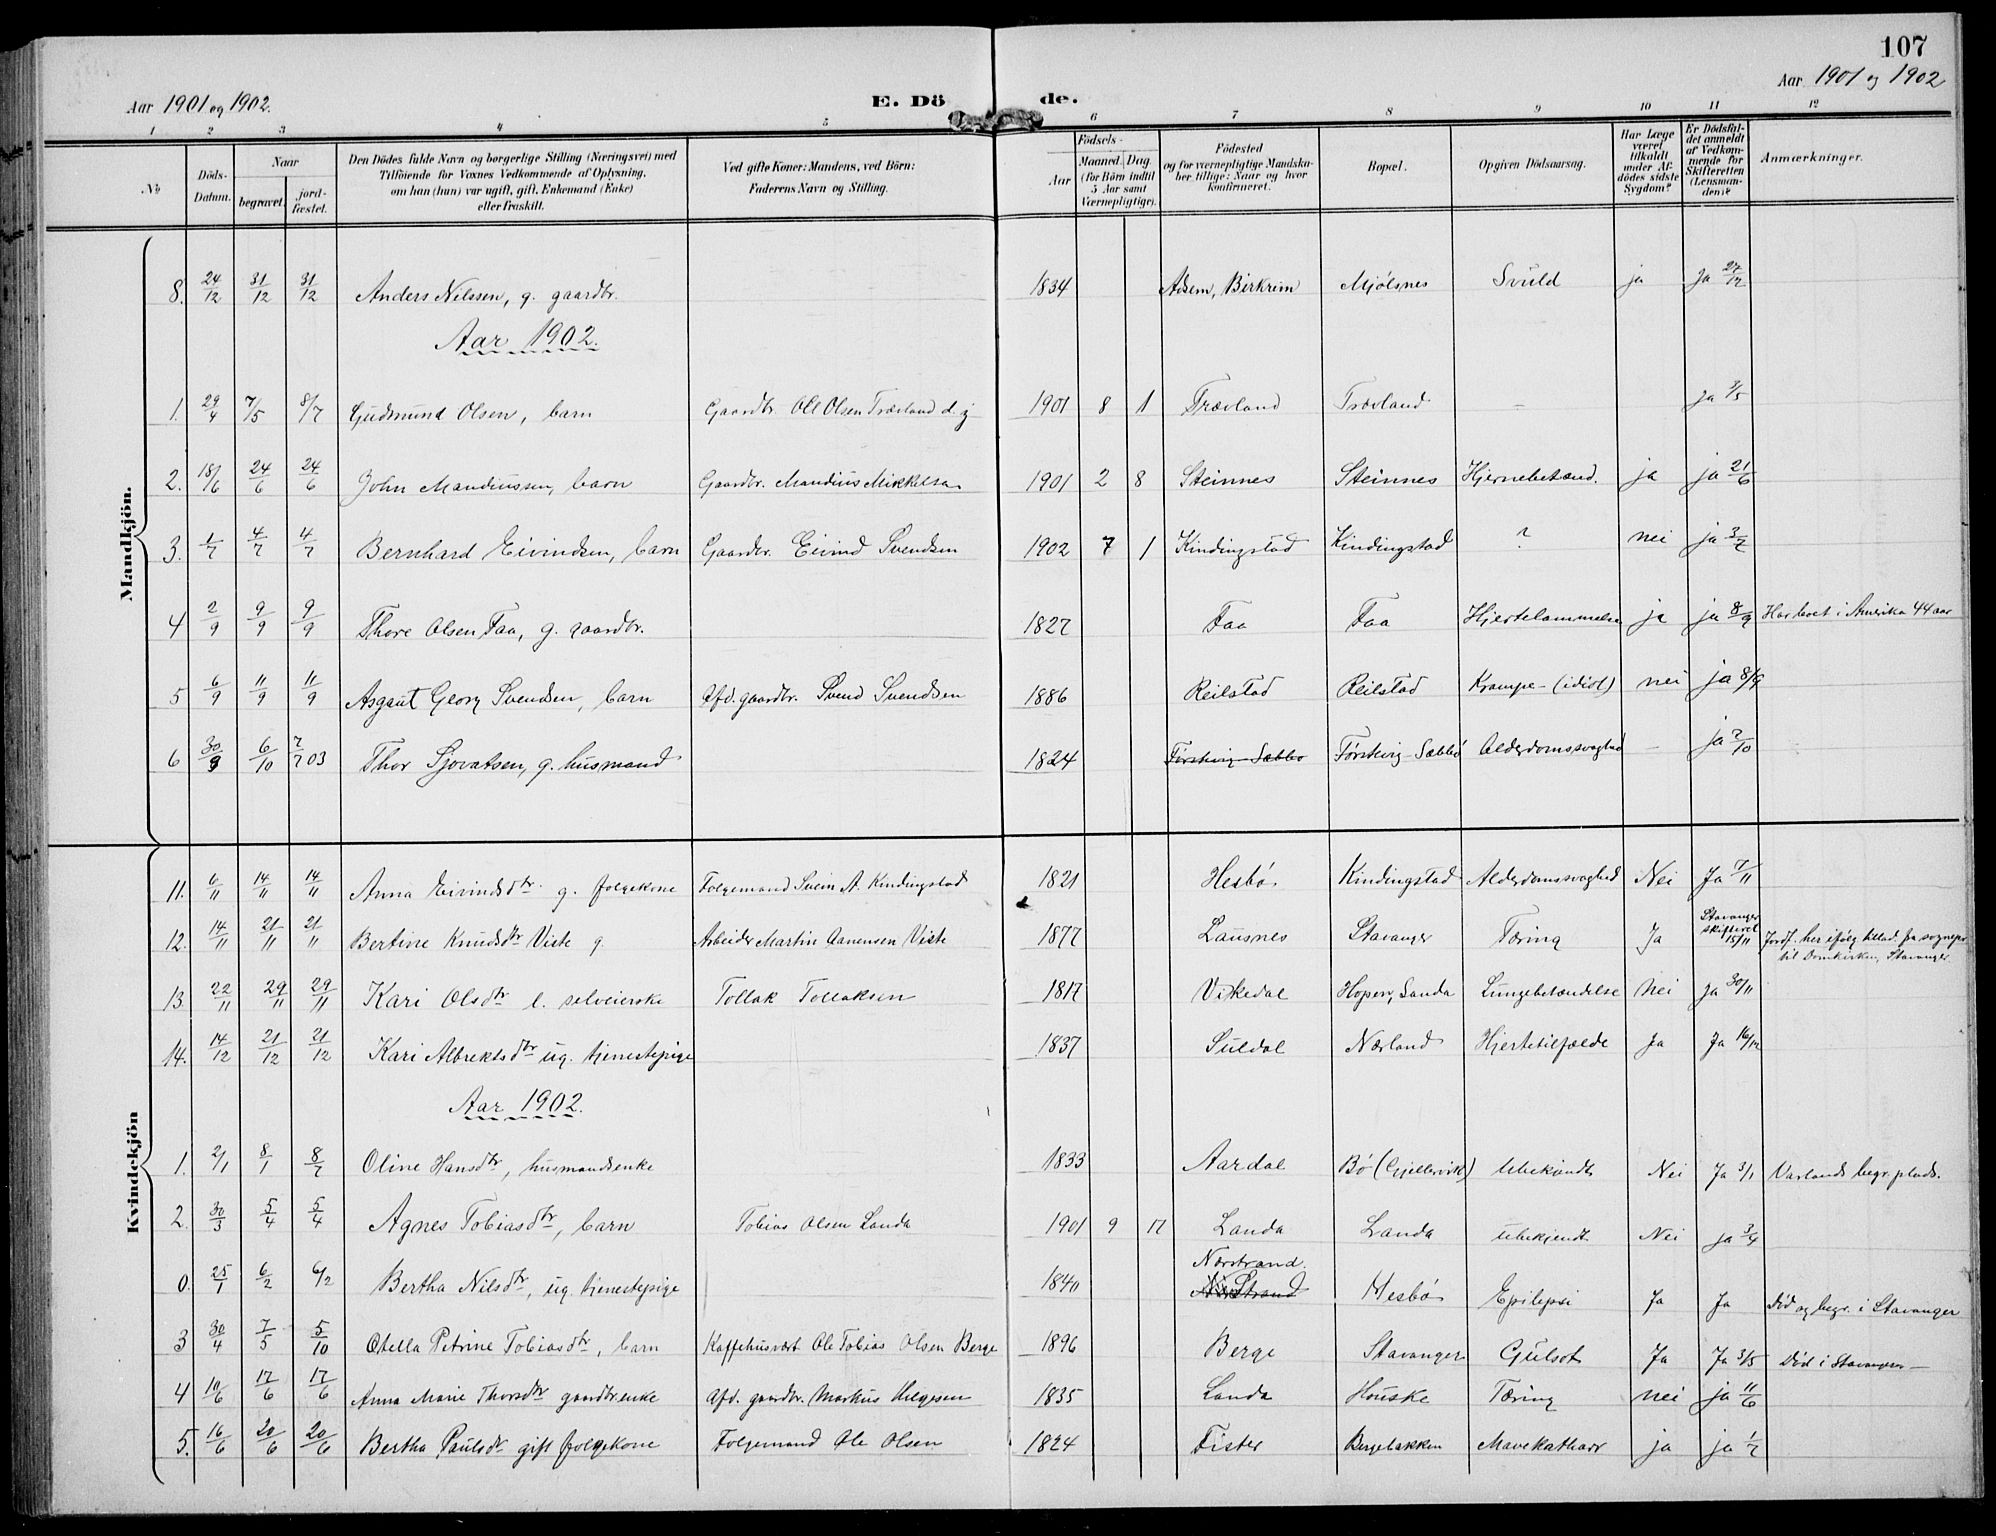 107
Aar 1901 og 1902.
E. Dö
de.
Aar 1901 og 1902
1 2 3 4 5 6 7 8 9 10 11 12
No
Döds-Datum.
Naar
begravet.
jordfæstet.
Den Dödes fulde Navn og borgerlige Stilling (Næringsvei) med Tilföiende for Voxnes Vedkommende af Oplysning, om han (hun) var ugift, gift, Enkemand (Enke) eller fraskilt.
Ved gifte Koner: Mandens, ved Börn: Faderens Navn og Stilling.
Födsels-
Aar
Maaned. Dag.
(for Börn indtil 5 Aar samt Værnepligtige).
Födested og for værnepligtige Mandskaber tillige: Naar og hvor Konfirmeret.
Bopæl.
Opgiven Dödsaarsag.
Har Læge været tilkaldt under Afdödes sidste Sygdom?
Er Dödsfaldet anmeldt af Vedkommende for Skifteretten (Lensmanden)?
Anmærkninger.
Mandkjön.
8. 24/12 31/12 31/12 Anders Nilssen, g. gaardbr. 1834 Birkrem Mjølsnes Svuld ja Ja 27/12
Aar 1902.
1. 29/4 7/5 8/7 Gudmund Olsen, barn Gaardbr. Ole Olsen Trævland d. y 1901 8 1 Trævland Trævland – ja 3/5
2. 18/6 24/6 24/6 John Mandiussen, barn Gaardbr. Mandius Mikkelsen 1901 2 8 Steinnes Steinnes Hjernebetænd. ja ja 21/6
3. 1/7 4/7 4/7 Bernhard Eivindsen, barn Gaardbr. Eivind Svendsen 1902 7 1 Kindingstad Kindingstad ? nei ja 3/7
4 2/9 9/9 9/9 Thore Olsen Faa, g. gaardbr. 1827 Faa Faa Hjertelammelse ja ja 8/9 Har boet i Amerika 44 aar
5 6/9 11/9 11/9 Asgaut Georg Svendsen, barn Afd. gaardbr. Svend Svendsen 1886 Reilstad Reilstad Krampe – (idiot) nei ja 8/9
6 30/9 6/10 7/7 03 Thor Sjovatsen, g. husmand 1824 Førskvig-Sæbbø Førskvig-Sæbbø Alderdomssvaghed – ja 7/10
Kvindekjön
11. 6/11 14/11 14/11 Anna Eivindsdtr. g. folgekone Folgemand Svein A. Kindingstad 1821 Hesbø Kindingstad Alderdomssvaghed Nei Ja 7/11
12. 14/11 21/11 21/11 Bertine Knudsdtr Viste g. Arbeider Martin Aanensen Viste 1877 Lausnes Stavanger Tæring Ja Stavanger skifteret 15/11 Jordf. her ifølg tillad. fra sognepr. til Domkirken, Stavanger
13 22/11 29/11 29/11 Kari Olsdtr e. selveierske Tollak Tollaksen 1817 Vikedal Hopen, Landa Lungebetændelse Nei Ja 30/11
14. 14/12 21/12 21/12 Kari Albrektsdtr ug. tjenestepige 1837 Suldal Nærland Hjertetilfælde Ja Ja 16/12
Aar 1902.
1. 2/1 8/1 8/7 Oline Hansdtr, husmandsenke 1833 Aardal Bø (Gjellervik) Ubekjendt Nei Ja 3/1 Varlands begr.plads.
2. 30/3 5/4 5/4 Agnes Tobiasdtr, barn Tobias Olsen Landa 1901 9 17 Landa Landa ubekjendt Nei ja 3/4
0. 25/1 6/2 6/2 Bertha Nilsdtr, ug. tjenestepige 1840 Nærstrand. Hesbø Epilepsi Ja Ja Død og begr. i Stavanger
3 30/4 7/5 5/10 Otella Petrine Tobiasdtr, barn Kaffehusvært Ole Tobias Olsen Berge 1896 Berge Stavanger Gulsot Ja Ja 3/5 Død i Stavanger –
4 10/6 17/6 17/6 Anna Marie Thorsdtr gaardbr.enke Afd. gaardbr. Markus Helgesen 1835 Landa Houske Tæring nei ja 11/6
5. 16/6 20/6 20/6 Bertha Paulsdtr gift folgekone Folgemand Ole Olsen 1824 Fister Bergelakken Mavekatharr ja ja 1/7